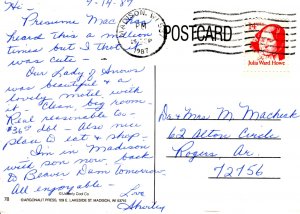 Hi - 9-14-87
Presume Mac has
heard this a million
times but I that it
was cute.
Our Lady of Snows
was beautiful & a
lovely motel with it
- Clean, big room -
Real reasonable to -
$36 dbl - Also nice
place to eat & shop -
I'm in Madison
with son now, back
to Beaver Dam tomorrow.
All enjoyable -
Love
Shirley
MADISON, WI
PM
1987
POSTCARD
14
Julia Ward Howe
Dr & Mrs M Machuk
62 Alton Circle
Rogers Ar.
72756
78
©ARGONAUT PRESS, 109 E. LAKESIDE ST. MADISON, WI 53715